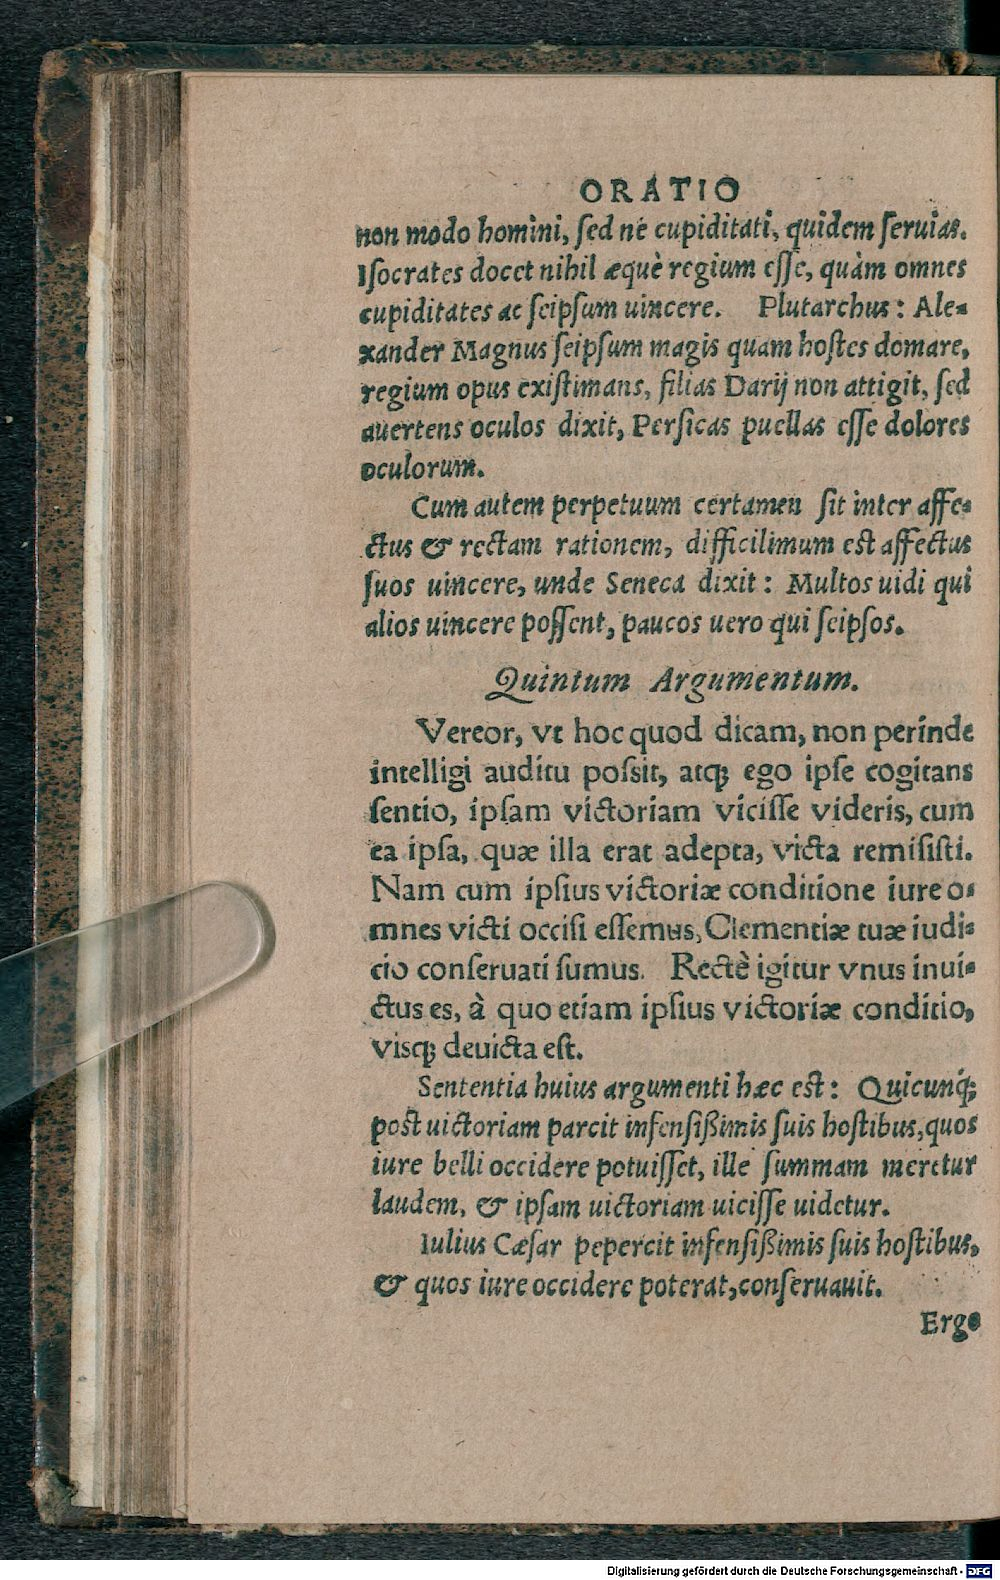 ORATIO
non modo homini, ſed ne cupiditati, quidem ſeruias.
Iſocrates docet nihil æquè regium eſſe, quàm omnes
cupiditates ac ſeipſum uincere. Plutarchus: Ale-
xander Magnus ſeipſum magis quam hoſtes domare,
regium opus exiſtimans, filias Darij non attigit, ſed
auertens oculos dixit, Perſicas puellas eſſe dolores
oculorum.
Cum autem perpetuum certamen ſit inter affe-
ctus & rectam rationem, difficilimum est affectus
ſuos uincere, unde Seneca dixit: Multos uidi qui
alios uincere poſſent, paucos uero qui ſeipſos.
Quintum Argumentum.
Vereor, vt hoc quod dicam, non perinde
intelligi auditu poſsit, atq; ego ipſe cogitans
ſentio, ipſam victoriam viciſſe videris, cum
ea ipſa, quæ illa erat adepta, victa remiſiſti.
Nam cum ipſius victoriæ conditione iure o-
mnes victi occiſi eſſemus, Clementiæ tuæ iudi-
cio conſeruati ſumus. Rectè igitur vnus inui-
ctus es, à quo etiam ipſius victoriæ conditio,
visq; deuicta eſt.
Sententia huius argumenti hæc est: Quicunq́;
post uictoriam parcit infenſißimis ſuis hoſtibus, quos
iure belli occidere potuiſſet, ille ſummam meretur
laudem, & ipſam uictoriam uiciſſe uidetur.
Iulius Cæſar pepercit infenſißimis ſuis hoſtibus,
& quos iure occidere poterat, conſeruauit.
Ergo
Digitalisierung gefördert durch die Deutsche Forschungsgemeinschaft - DFG